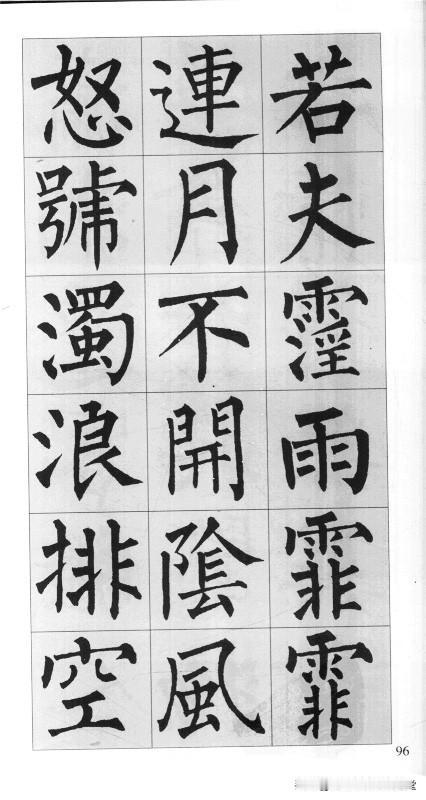 若夫霪雨霏霏
連月不開陰風
怒號濁浪排空
96